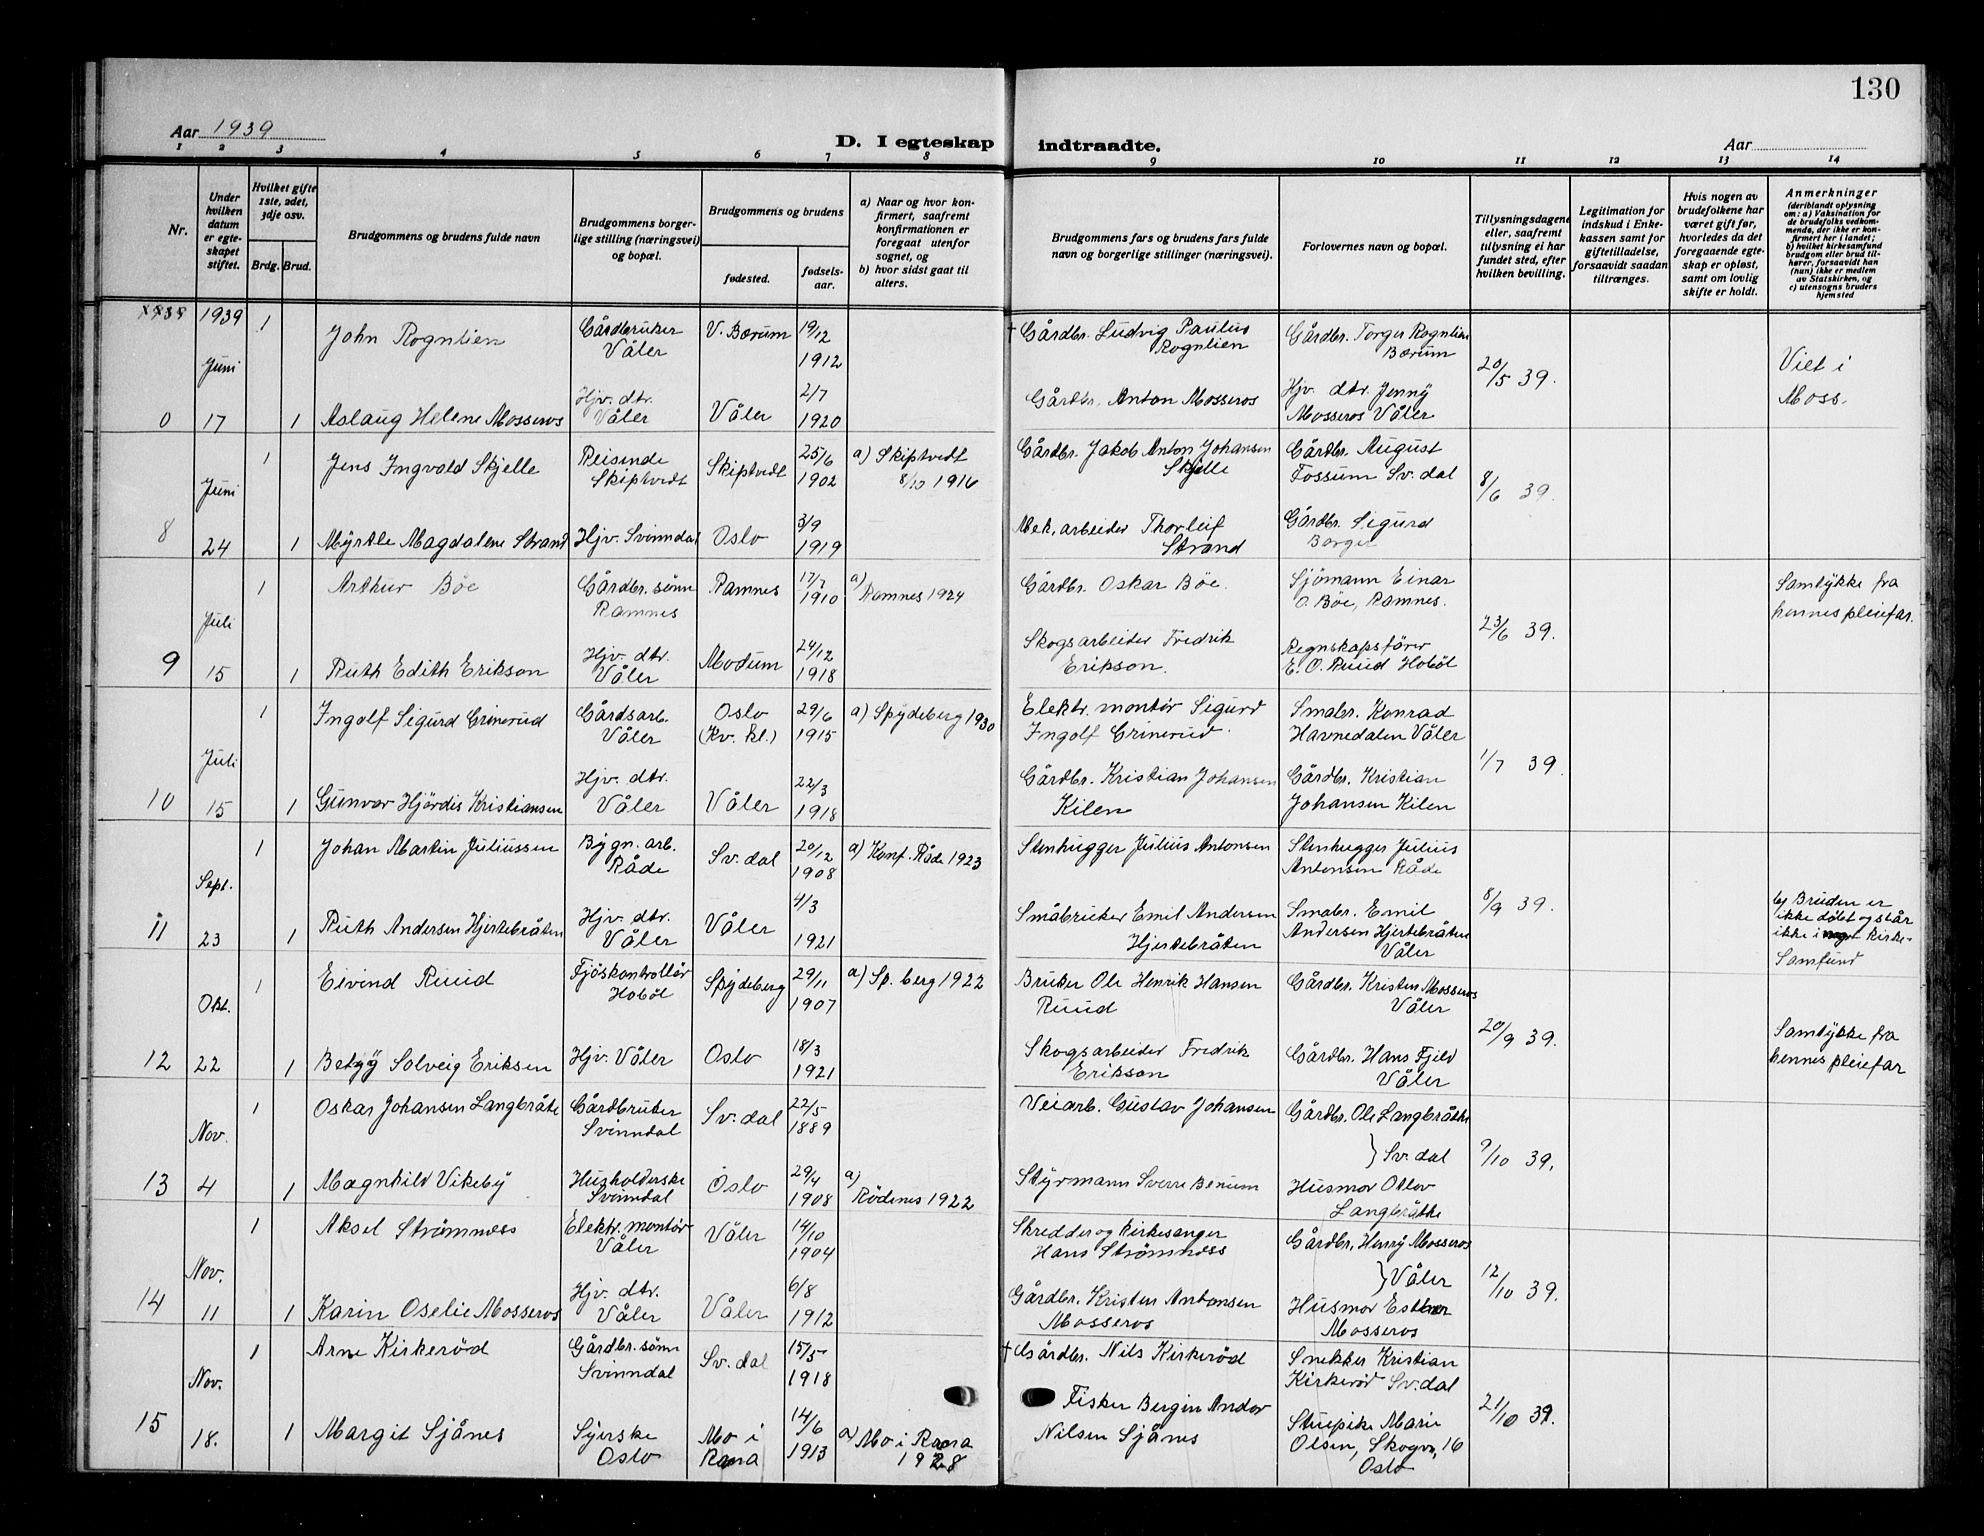 130
Aar 1939
D. I egteskap indtraadte.
Aar
1 2 3 4 5 6 7 8 9 10 11 12 13 14
Nr.
Under hvilken datum er egteskapet stiftet.
Hvilket gifte 1ste, 2det, 3dje osv.
Brdg. Brud.
Brudgommens og brudens fulde navn
Brudgommens borgerlige stilling (næringsvei) og bopæl.
Brudgommens og brudens
fødested.
fødselsaar.
a) Naar og hvor konfirmert, saafremt konfirmationen er foregaat utenfor sognet, og
b) hvor sidst gaat til alters.
Brudgommens fars og brudens fars fulde navn og borgerlige stillinger (næringsvei).
Forlovernes navn og bopæl.
Tillysningsdagene eller, saafremt tillysning ei har fundet sted, efter hvilken bevilling.
Legitimation for indskud i Enkekassen samt for giftetilladelse, forsaavidt saadan tiltrænges.
Hvis nogen av brudefolkene har været gift før, hvorledes da det foregaaende egteskap er opløst, samt om lovlig skifte er holdt.
Anmerkninger
(deriblandt oplysning om: a) Vaksination for de brudefolks vedkommende, der ikke er konfirmert her i landet; b) hvilket kirkesamfund brudgom eller brud tilhører, forsaavidt han (hun) ikke er medlem av Statskirken, og c) utensogns bruders hjemsted
1939 1 John Rognlien Gårdbruker Våler V. Bærum 19/12 1912 † Gårdbr. Ludvig Paulus Rognlien Gårdbr. Torger Rognlien Bærum
Juni 20/5 39. Viet i Moss.
0 17 1 Aslaug Helene Mosseros Hjv. dtr. Våler Våler 2/7 1920 Gårdbr. Anton Mosseros Hjv. dtr. Jenny Mosseros Våler
1 Jens Ingvald Skjelle Reisende Skiptvedt Skiptvedt 25/6 1902 a) Skiptvedt 8/10 1916 Gårdbr. Jakob Anton Johansen Skjelle Gårdbr. August Fossum Sv. dal
Juni 8/6 39.
8 24 1 Myrtle Magdalene Strand Hjv. Svinndal Oslo 3/9 1919 Mek. arbeider Thorleif Strand Gårdbr. Sigurd Borger
1 Arthur Böe Gårdbr. sønn Ramnes Ramnes 17/7 1910 a) Ramnes 1924 Gårdbr. Oskar Böe. Sjömann Einar O. Böe, Ramnes. Samtykke fra hennes pleiefar.
Juli 23/6 39.
9 15 1 Ruth Edith Erikson Hjv. dtr. Våler Modum 24/12 1918 Skogsarbeider Fredrik Erikson. Regnskapsfører E. O. Ruud Hobøl
1 Ingolf Sigurd Grinerud Gårdsarb. Våler Oslo (Kv. kl.) 29/6 1915 a) Spydeberg 1930 Elektr. montör Sigurd Ingolf Grinerud. Småbr. Konrad Havnedalen Våler
Juli 1/7 39.
10 15 1 Gunvor Hjördis Kristiansen Hjv. dtr. Våler Våler 22/3 1918 Gårdbr. Kristian Johansen Kilen Gårdbr. Kristian Johansen Kilen
1 Johan Martin Juliussen Bygn. arb. Råde Sv. dal 20/12 1908 a) Konf. Råde 1923 Stenhugger Julius Antonsen Stenhugger Julius Antonsen Råde
Sept. 8/9 39.
11 23 1 Ruth Andersen Hjertebråten Hjv. dtr. Våler Våler 4/3 1921 Småbruker Emil Andersen Hjertebråten Småbr. Emil Andersen Hjertebråten Våler b) Bruden er ikke döbt og står ikke i noget kirkesamfund
1 Eivind Ruud Fjöskontrollör Hoböl Spydeberg 29/11 1907 a) Sp. berg 1922 Bruker Ole Henrik Hansen Ruud Gårdbr. Kristen Mosseros Våler
Okt. 20/9 39. Samtykke fra hennes pleiefar
12 22 1 Betzy Solveig Eriksen Hjv. Våler Oslo 18/3 1921 Skogsarbeider Fredrik Erikson Gårdbr. Hans Fjeld Våler
1 Oskar Johansen Langbråte Gårdbruker Svinndal Sv. dal 22/5 1889 Veiarb. Gustav Johansen Gårdbr. Ole Langbråtke
Nov. } Sv. dal 9/10 39.
13 4 1 Magnhild Vikeby Husholderske Svinndal Oslo 29/4 1908 a) Rödenes 1922 Styrmann Sverre Benum Husmor Otlov Langbråtke
1 Aksel Strömnæss Elektr. montör Våler Våler 14/10 1904 Skredder og kirkesanger Hans Strömnæss Gårdbr. Henry Mosseros
Nov. } Våler 12/10 39.
14 11 1 Karin Oselie Mosseros Hjv. dtr. Våler Våler 6/8 1912 Gårdbr. Kristen Antonsen Mosseros Husmor Esther Mosseros
1 Arne Kirkeröd Gårdbr. sönn Svinndal Sv. dal 15/5 1918 † Gårdbr. Nils Kirkeröd Snekker Kristian Kirkeröd Sv. dal
Nov. 21/10 39.
15 18. 1 Margit Sjånes Syerske Oslo Mo i Rana 14/6 1913 a) Mo i Rana 1928 Fisker Bergin Andor Nilsen Sjånes Stuepike Marie Olsen, Skogv. 16 Oslo